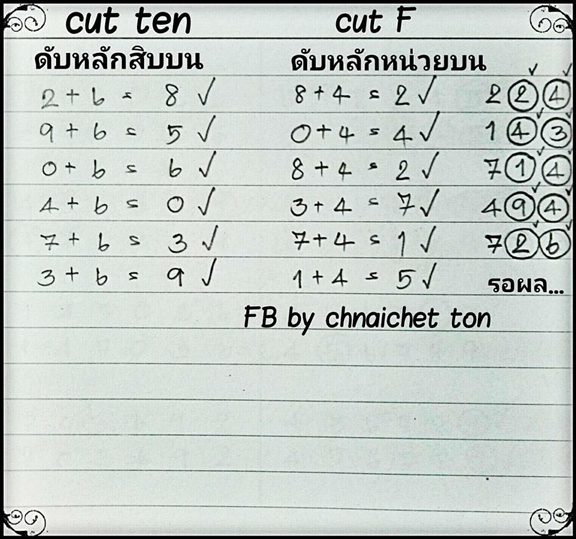 cut ten cut F
ดับหลักสิบบน ดับหลักหน่วยบน
2 + 6 = 8 ✓ 8 + 4 = 2 ✓ 2 2 4
9 + 6 = 5 ✓ 0 + 4 = 4 ✓ 1 4 3
0 + 6 = 6 ✓ 8 + 4 = 2 ✓ 7 1 4
4 + 6 = 0 ✓ 3 + 4 = 7 ✓ 4 9 4
7 + 6 = 3 ✓ 7 + 4 = 1 ✓ 7 2 6
3 + 6 = 9 ✓ 1 + 4 = 5 ✓ รอผล...
FB by chnaichet ton